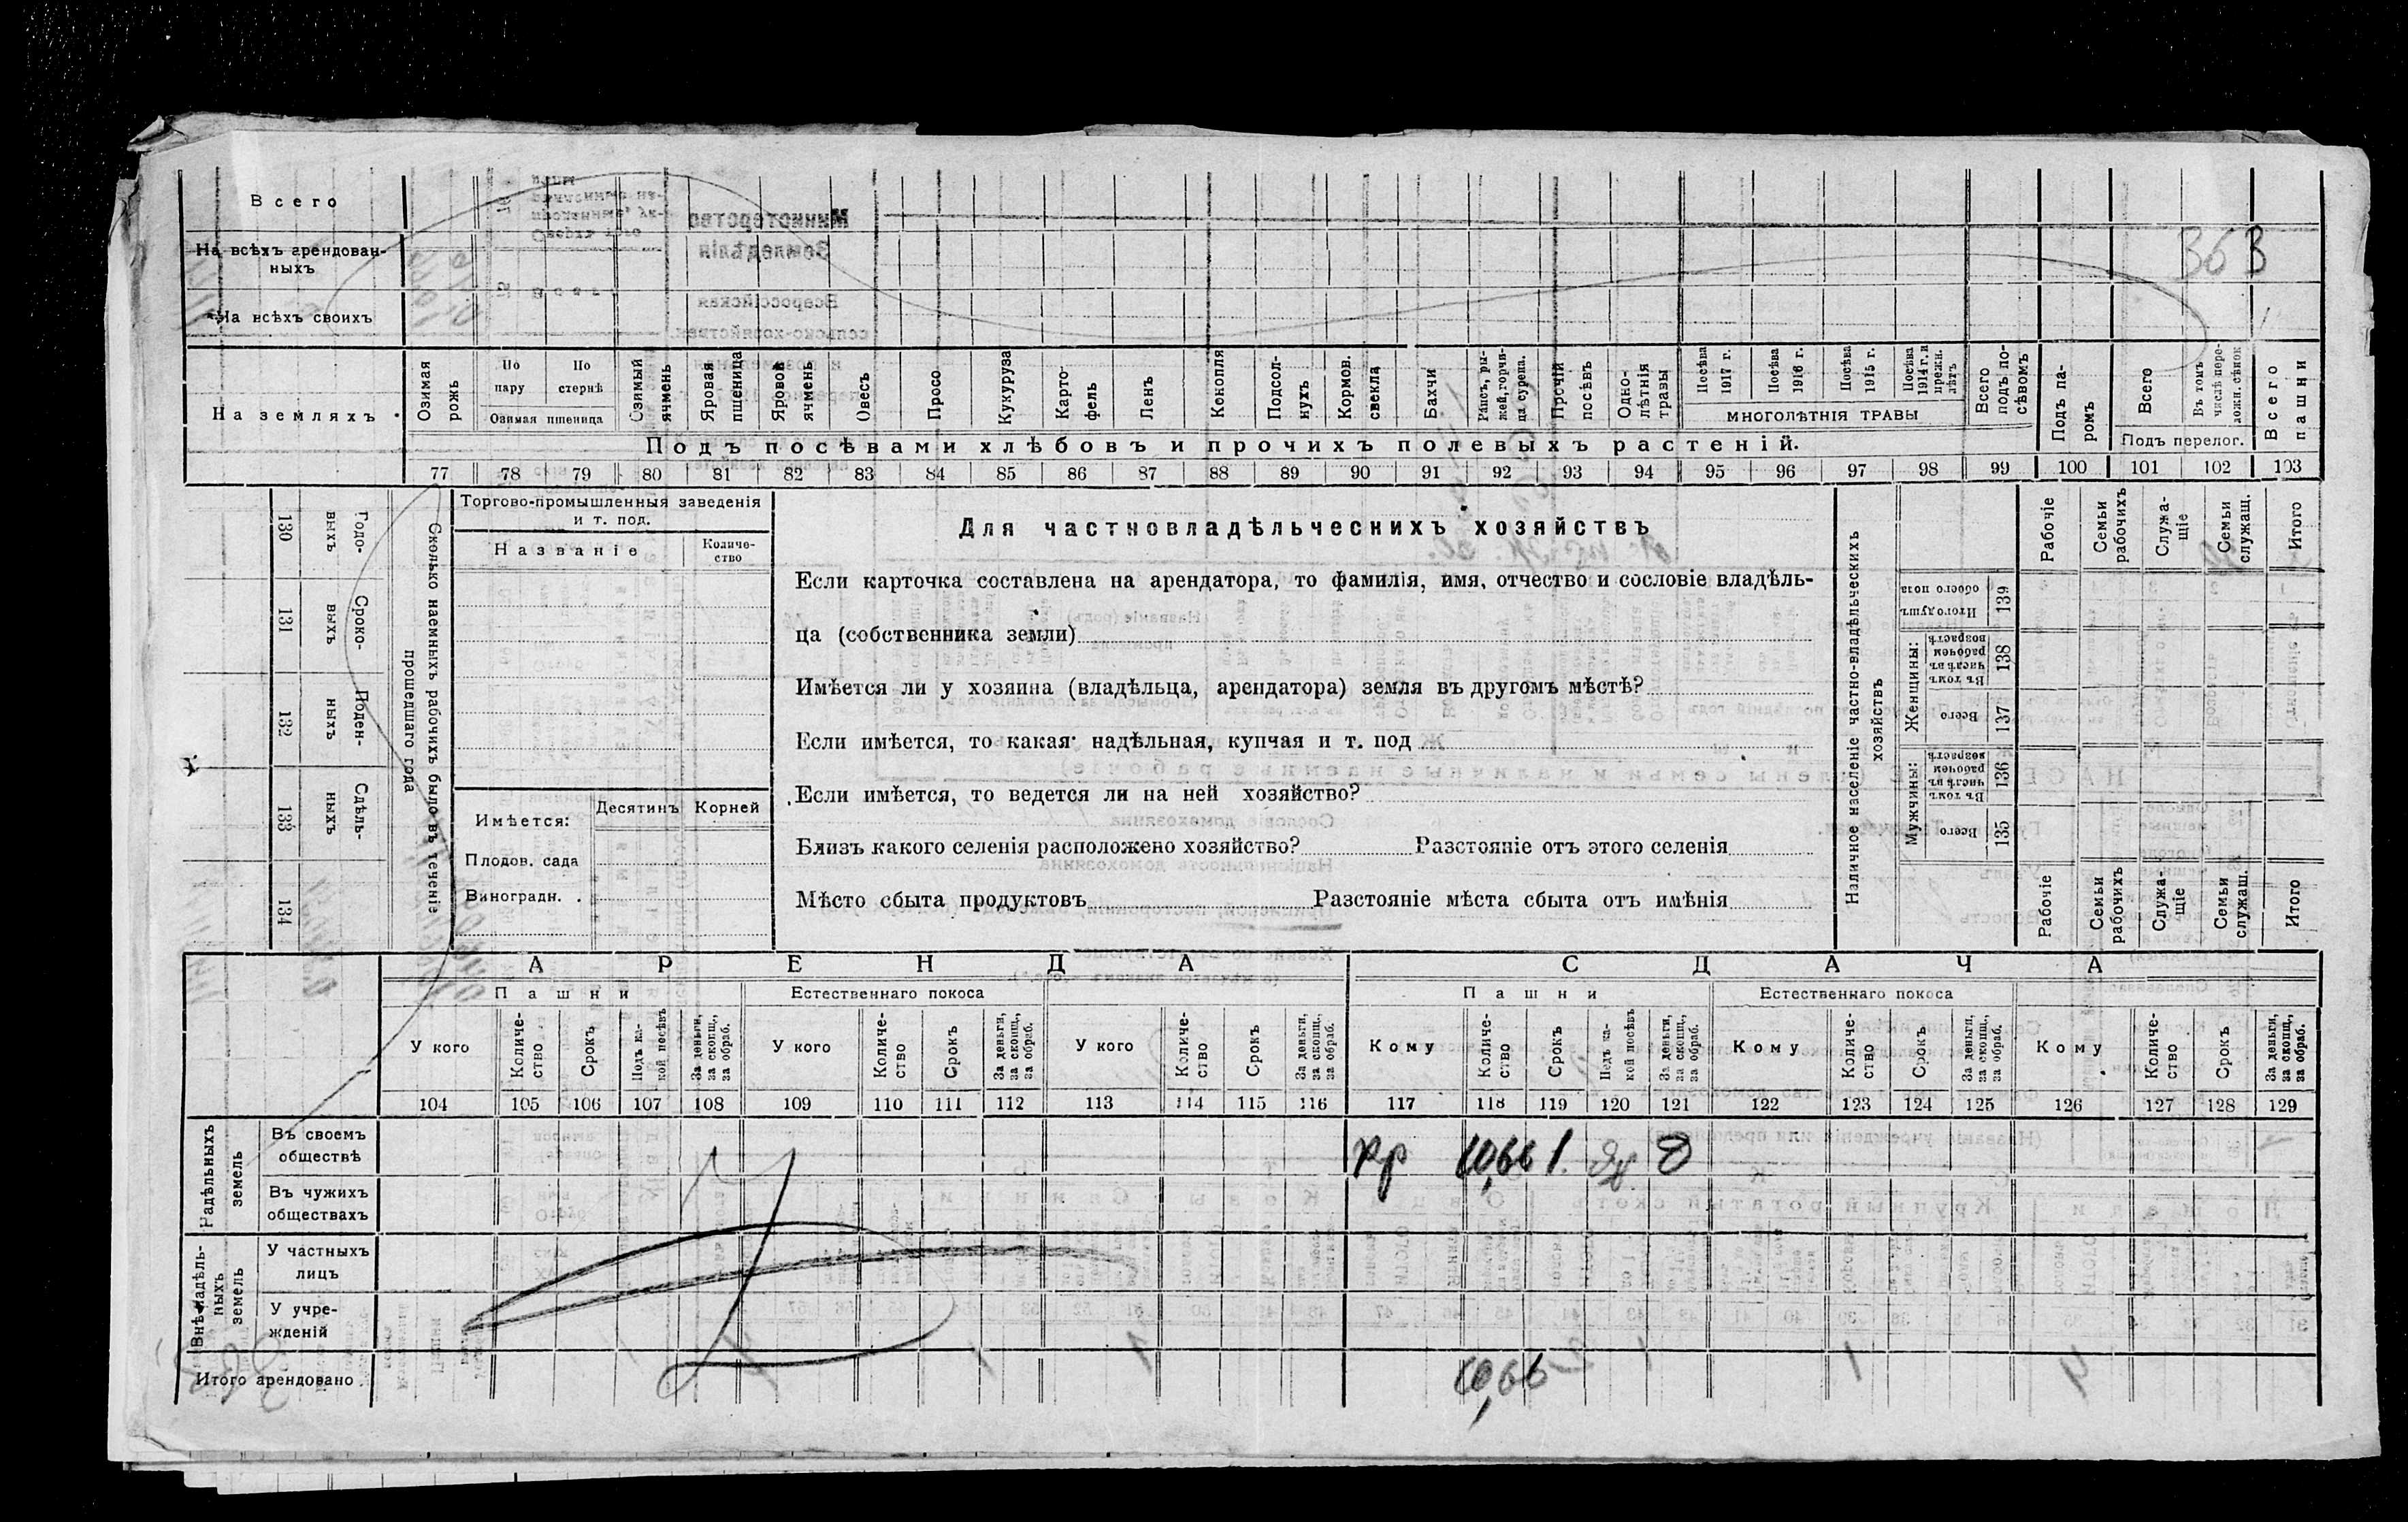 Всего
На всѣхъ арендован-
ныхъ
363
На всѣхъ своихъ
На земляхъ
Озимая рожь
По пару
По стернѣ
Озимая пшеница
Озимый ячмень
Яровая пшеница
Яровой ячмень
Овесъ
Просо
Кукуруза
Карто-
фель
Ленъ
Конопля
Подсол-
нухъ
Кормов. свекла
Бахчи
Рапсъ, ры-
жей, горчи-
ца сурепа.
Прочій посѣвъ
Одно-
лѣтнія
травы
Посѣва 1917 г.
Посѣва 1916 г.
Посѣва 1915 г.
Посѣва 1914 г. и прежн. лѣтъ
МНОГОЛѢТНІЯ ТРАВЫ
Всего подъ по-
сѣвомъ
Подъ па-
ромъ
Всего
Въ томъ числѣ пере-
ложн. сѣнок
Подъ перелог.
Всего пашни
Подъ посѣвами хлѣбовъ и прочихъ полевыхъ растеній.
77 78 79 80 81 82 83 84 85 86 87 88 89 90 91 92 93 94 95 96 97 98 99 100 101 102 103
130 131 132 133 134
Годо-
выхъ
Сроко-
выхъ
Поден-
ныхъ
Сдѣль-
ныхъ
Сколько наемныхъ рабочихъ было въ теченіе
прошедшаго года
Торгово-промышленныя заведенія
и т. под.
Названіе
Количе-
ство
Имѣется:
Десятинъ
Корней
Плодов. сада
Виноградн. .
Для частновладѣльческихъ хозяйствъ
Если карточка составлена на арендатора, то фамилія, имя, отчество и сословіе владѣль-
ца (собственника земли)
Имѣется ли у хозяина (владѣльца, арендатора) земля въ другомъ мѣстѣ?
Если имѣется, то какая надѣльная, купчая и т. под
Если имѣется, то ведется ли на ней хозяйство?
Близъ какого селенія расположено хозяйство? Разстояніе отъ этого селенія
Мѣсто сбыта продуктовъ Разстояніе мѣста сбыта отъ имѣнія
Наличное населеніе частно-владѣльческихъ
хозяйствъ
Рабочіе
Семьи рабочихъ
Служа-
щіе
Семьи служащ.
Итого
Итого душъ обоего пола
139
Женщины:
Въ томъ числѣ въ рабочемъ возрастѣ
138
Всего
137
Мужчины:
Въ томъ числѣ въ рабочемъ возрастѣ
136
Всего
135
Рабочіе
Семьи рабочихъ
Служа-
щіе
Семьи служащ.
Итого
АРЕНДА
СДАЧА
Пашни
Естественнаго покоса
Пашни
Естественнаго покоса
У кого
Количе-
ство
Срокъ
Подъ ка-
кой посѣвъ
За деньги,
за скопщ.,
за обраб.
У кого
Количе-
ство
Срокъ
За деньги,
за скопщ.,
за обраб.
У кого
Количе-
ство
Срокъ
За деньги,
за скопщ.,
за обраб.
Кому
Количе-
ство
Срокъ
Подъ ка-
кой посѣвъ
За деньги,
за скопщ.,
за обраб.
Кому
Количе-
ство
Срокъ
За деньги,
за скопщ.,
за обраб.
Кому
Количе-
ство
Срокъ
За деньги,
за скопщ.,
за обраб.
104 105 106 107 108 109 110 111 112 113 114 115 116 117 118 119 120 121 122 123 124 125 126 127 128 129
Надѣльныхъ
земель
Въ своемъ
обществѣ
Кр 10,66 1
Въ чужихъ
обществахъ
Внѣнадѣль-
ныхъ
земель
У частныхъ
лицъ
У учре-
жденій
Итого арендовано .
10,66